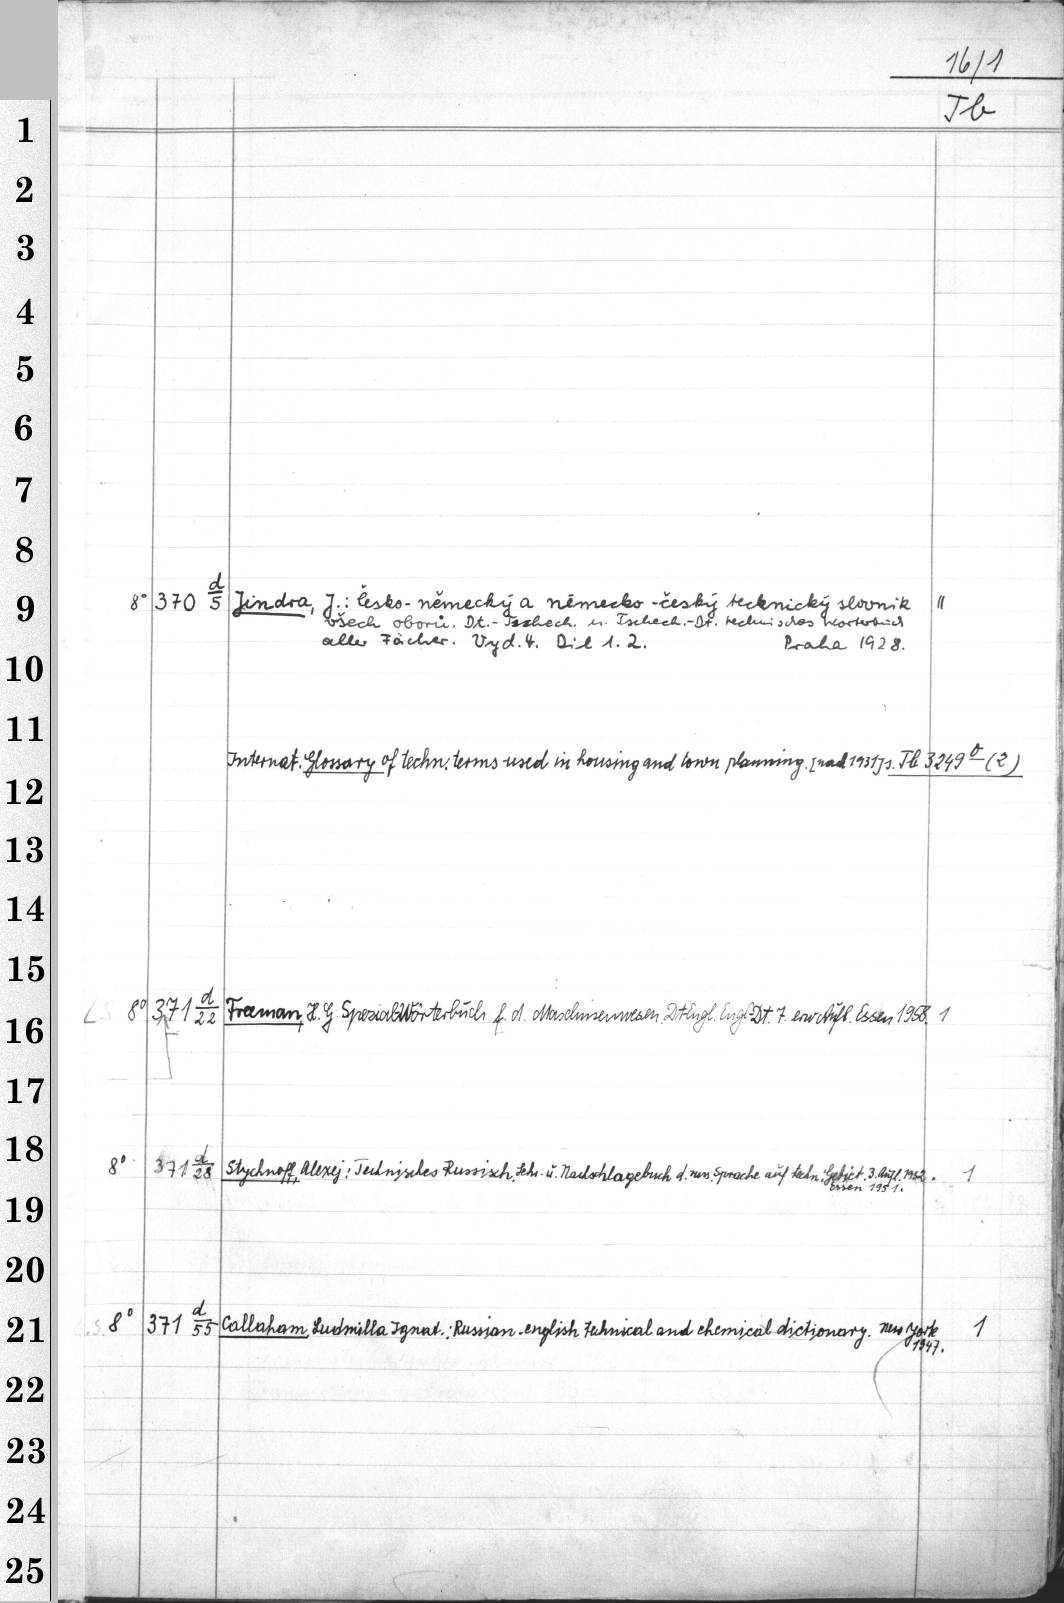 16/1
Tb
1
2
3
4
5
6
7
8
9
10
11
12
13
14
15
16
17
18
19
20
21
22
23
24
25
8° 370 d/5 Jindra, J.: česko-německý a německo-český technický slovník II
všech oborů. Dt.-Tschech. u. Tschech.-Dt. technisches Wörterbuch
aller Fächer. Vyd. 4. Díl 1. 2. Praha 1928.
Internat. Glossary of techn. terms used in housing and town planning. [nach 1931] s. Tb 3249 (2)
L.S. 8° 371 d/22 Freeman, H. G. Spezial-Wörterbuch f. d. Maschinenwesen. Dt.-Engl. Engl.-Dt. 7. erw. Aufl. Essen 1958. 1
8° 371 d/28 Stychnoff, Alexej: Technisches Russisch. Lehr- u. Nachschlagebuch d. russ. Sprache auf techn. Gebiet. 3. Aufl. 1952. 1
Essen 1951.
8° 371 d/55 Callaham, Ludmilla Ignat.: Russian-english technical and chemical dictionary. New York 1
1947.